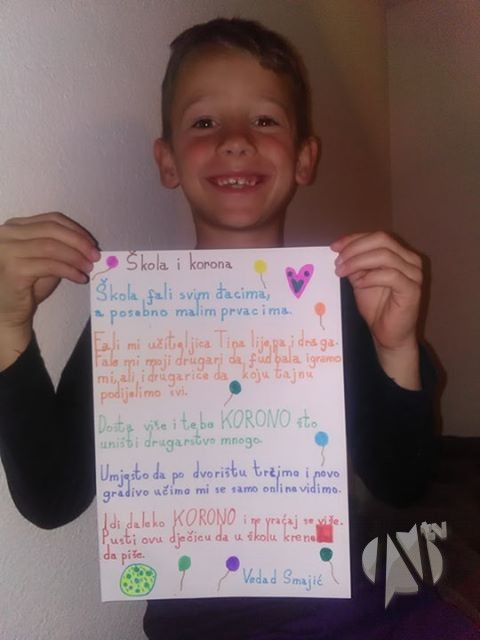 Škola i korona
Škola fali svim đacima,
a posebno malim prvacima.
Fali mi učiteljica Tina lijepa i draga.
Fale mi moji drugari da fudbala igramo
mi, ali i drugarice da koju tajnu
podijelimo svi.
Dosta više i tebe KORONO što
uništi drugarstvo mnogo.
Umjesto da po dvorištu trčimo i novo
gradivo učimo mi se samo online vidimo.
Idi daleko KORONO i ne vraćaj se više.
Pusti ovu dječicu da u školu krene
da piše.
Vedad Smajić
tv